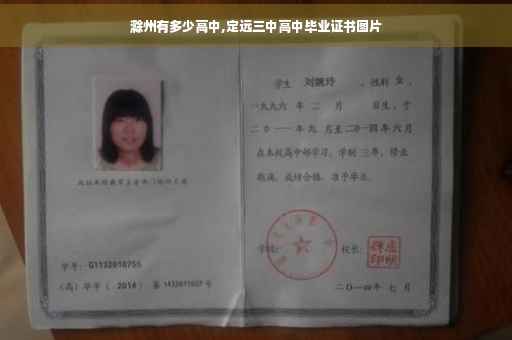 滁州有多少高中,定远三中高中毕业证书图片
学生 刘婉玲 ,性别 女 ,
一九九六 年 二 月 日生,于
二〇一一 年 九 月至 二〇一四 年 六 月
在本校高中部学习,学制 三 年,修业
期满,成绩合格,准予毕业。
学校: 校长:
二〇一四年 七 月
学号: G1132010755
(高)毕字( 2014 )第 1432011607 号